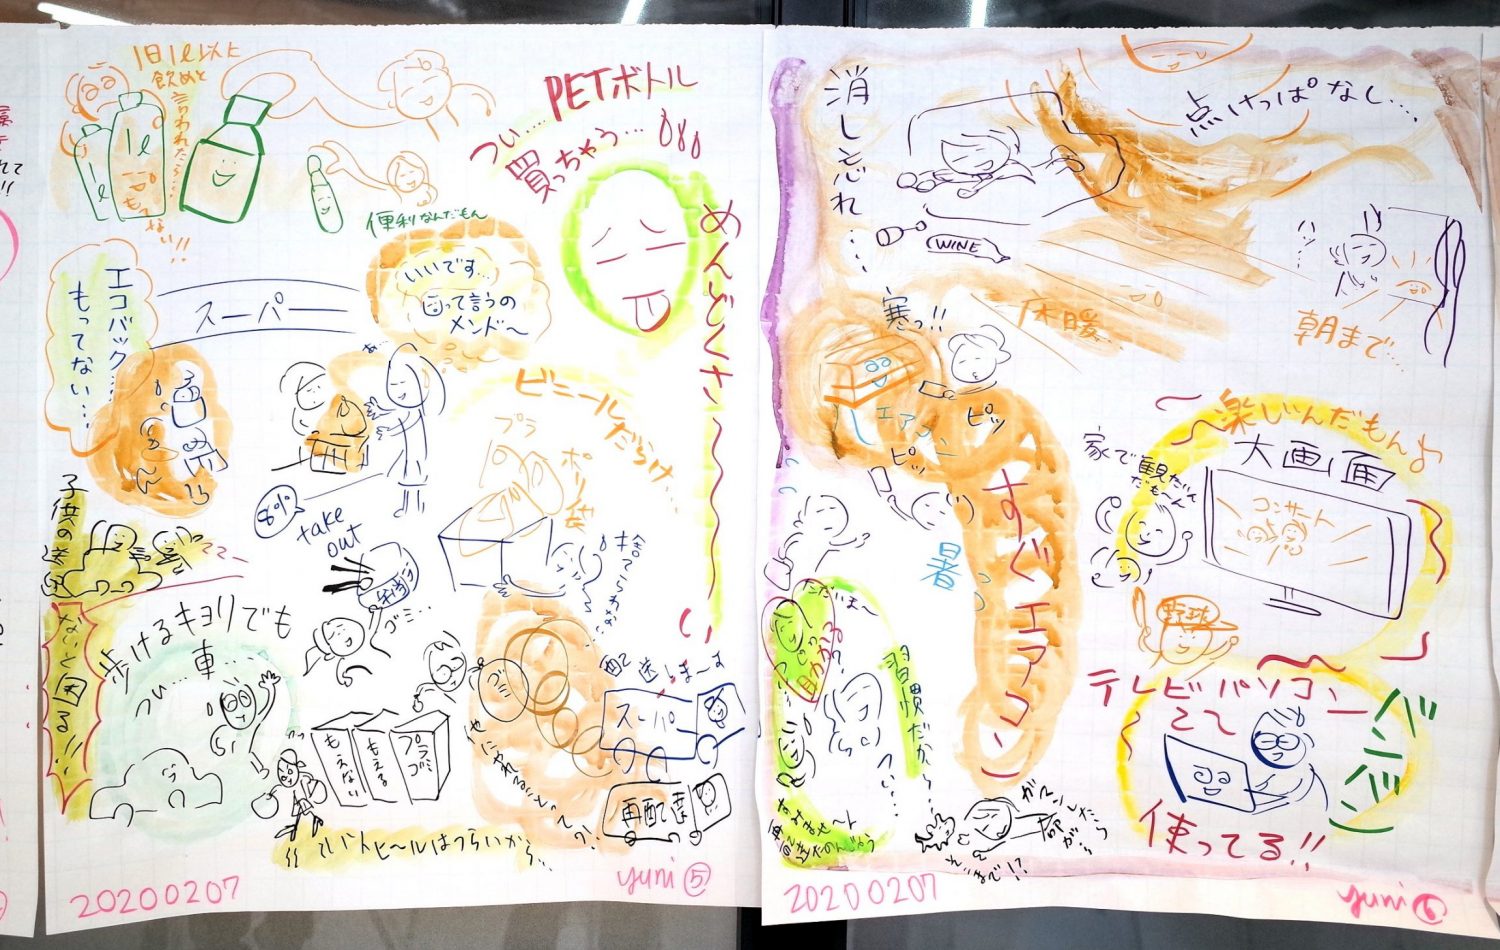 1日1ℓ以上
飲めと
言われたら…
1ℓ
1ℓ
もてない!!
便利なんだもん
PETボトル
つい…
買っちゃう…
めんどくさ〜い
エコバック…
もってない…
スーパー
いいです…
って言うの
メンド〜
ビニールだらけ…
プラ
ポリ袋
8%
take
out
弁当
ゴミ…
捨てられない
子供の送迎
ないと困る!!
歩けるキョリでも
つい…車…
もえない
もえる
プラゴミ
ゴミ
配送しまーす
スーパー
再配達
でもハイヒールはつらいから…
20200207
yuni⑤
消し忘れ…
点けっぱなし…
WINE
ハッ…
朝まで…
寒っ!!
休暖…
エアコン
ピッ
ピッ
暑
すぐエアコン
楽しいんだもんよ
大画面
家で観たいん
だも〜ん
コンサート
野球
テレビパソコン
バンバン
使ってる!!
ただいま〜
習慣だから…
つい…
20200207
yuni⑥